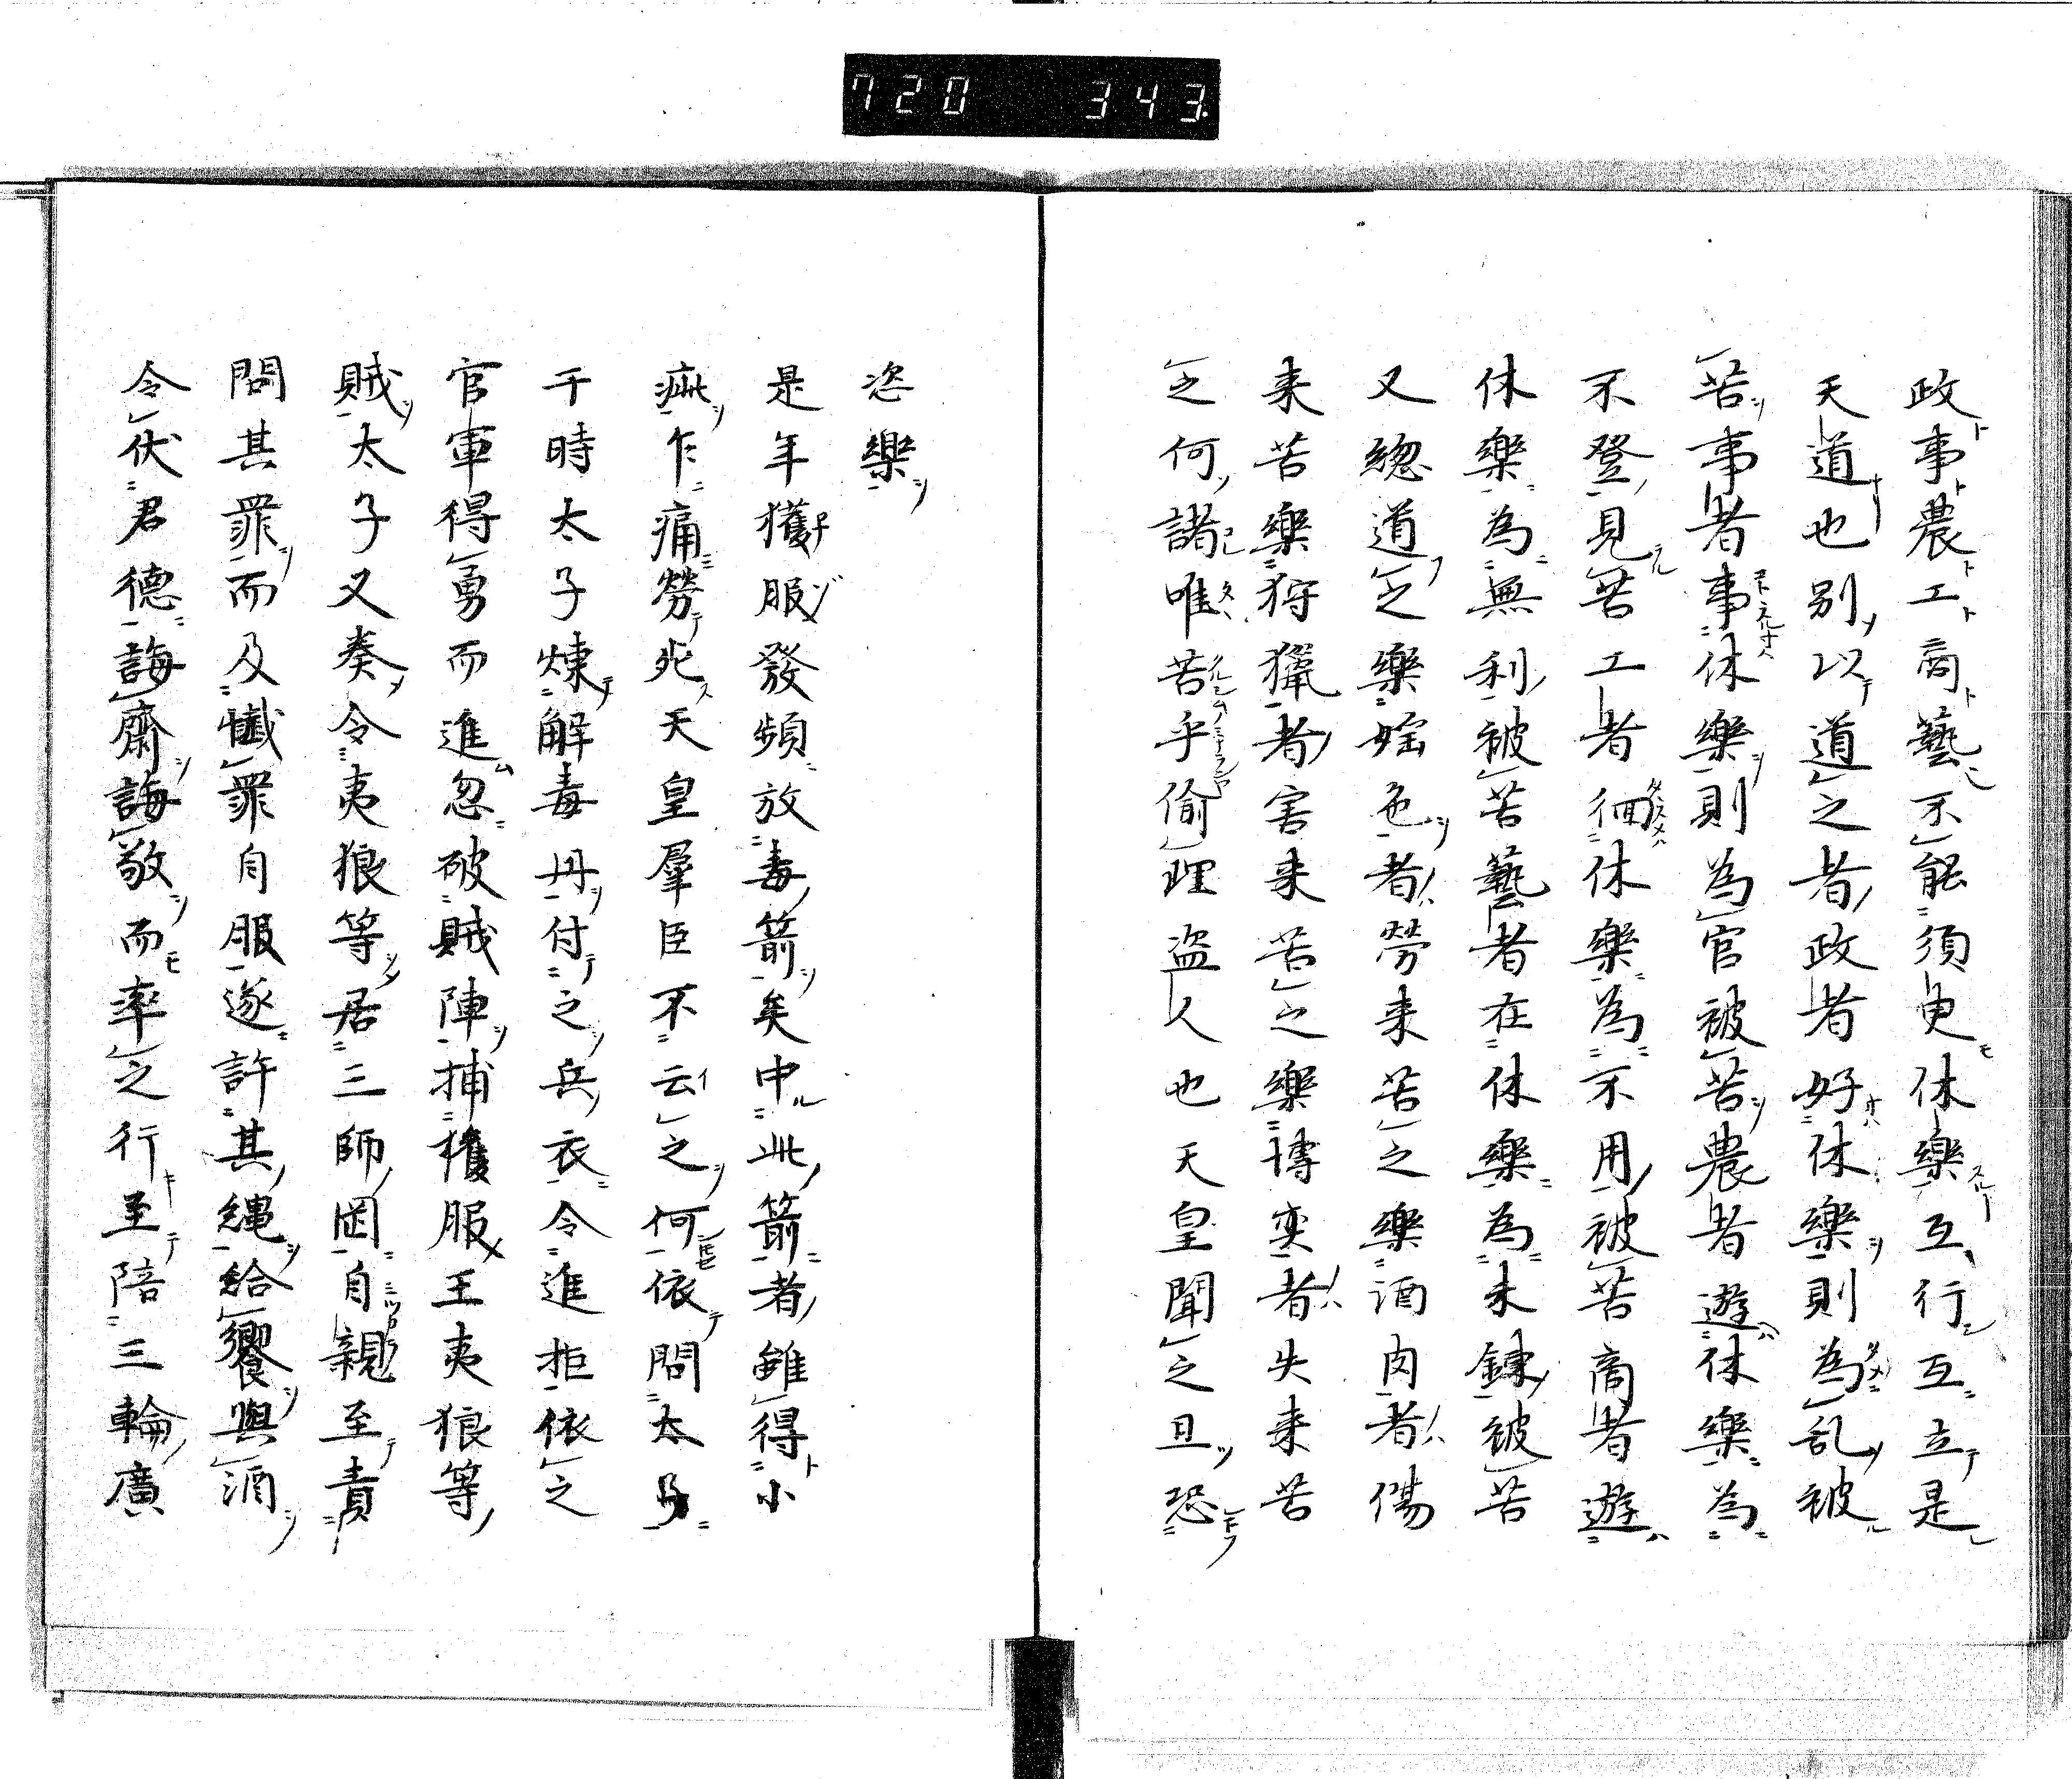 720 343
政事農工商藝不能須臾休樂互行互立是
天道也別以道之者政者好休樂則為乱被
苦事者事休樂則為官被苦農者遊休樂為
不登見苦工者徊休樂為不用被苦商者遊
休樂為無利被苦藝者在休樂為未錬被苦
又總道之樂婬色者勞来苦之樂酒肉者傷
来苦樂狩獵者害来苦之樂博奕者失来苦
之何諸唯苦乎偷理盗人也天皇聞之且恐
恣樂
是年獲服發頻放毒箭矣中此箭者雖得小
疵乍痛勞死天皇羣臣不云之何依問太子
于時太子煉解毒丹付之兵衣令進拒依之
官軍得勇而進忽破賊陣捕獲服王夷狼等
賊太子又奏令夷狼等居三師岡自親至責
問其罪而及懺罪自服遂許其縄給饗與酒
令伏君德誨齋誨敬而率之行至陪三輪廣